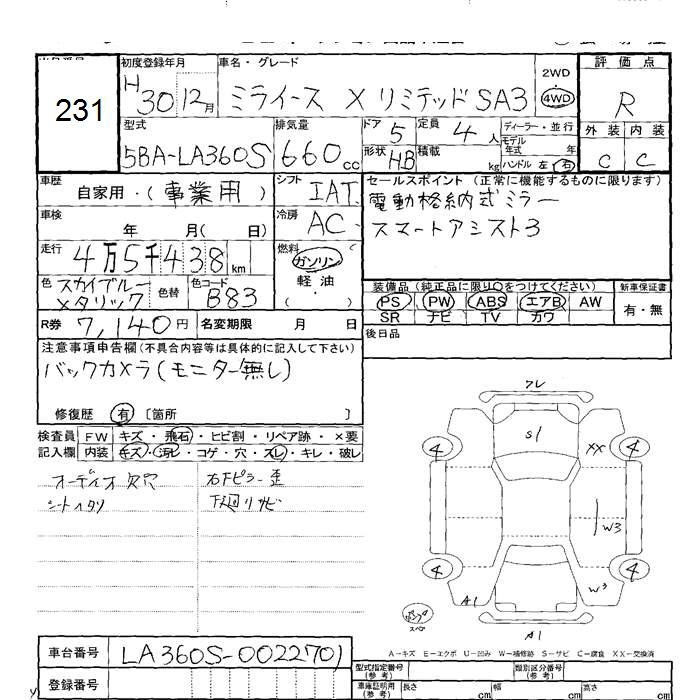 231
初度登録年月 車名・グレード
H30 12月 ミライース X リミテッド SA3
2WD
・
4WD
評価点
R
外装 内装
C C
型式 排気量 ドア 定員 ディーラー・並行
5BA-LA360S 660cc 5 4人
モデル年式 年
形状 HB 積載 kg ハンドル 左・右
車歴 自家用・(事業用) シフト IAT
車検 年 月( 日) 冷房 AC
走行 4万5千438km 燃料 ガソリン
軽油
・
( )
色 スカイブルーメタリック 色替 色コード B83
R券 7,140円 名変期限 月 日
セールスポイント (正常に機能するものに限ります)
電動格納式ミラー
スマートアシスト3
装備品(純正品に限り○をつけてください) 新車保証書
PS PW ABS エアB AW 有・無
SR ナビ TV カワ
後日品
注意事項申告欄(不具合内容等は具体的に記入して下さい)
バックカメラ(モニター無し)
修復歴 有 〔箇所 〕
検査員 FW キズ・飛石・ヒビ割・リペア跡・×要
記入欄 内装 キズ・汚レ・コゲ・穴・スレ・キレ・破レ
オーディオ欠穴 右下ピラー歪
シートヘタリ 下廻リサビ
フレ
S1
4 XX 4
W3
4 4
A1 W3
スペア
A1
A-キズ E-エクボ U-凹み W-補修跡 S-サビ C-腐食 XX-交換済
車台番号 LA360S-0022701
登録番号
型式指定番号(参考) 類別区分番号(参考)
車庫証明用(参考) 長さ cm 幅 cm 高さ cm